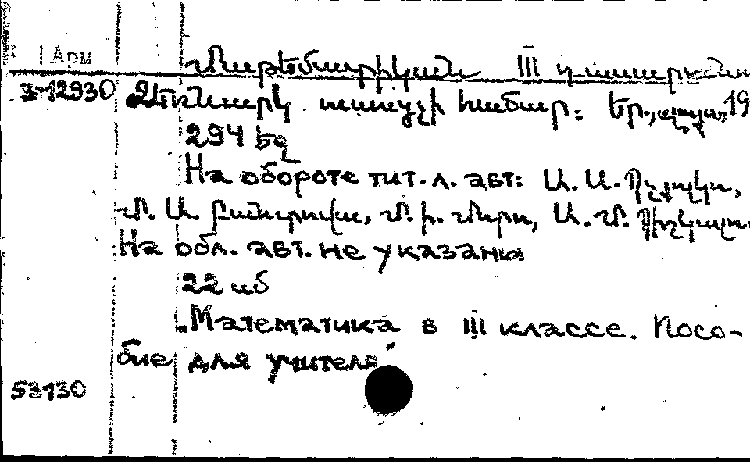 Арм
Մաթեմատիկան III դասարանում
3-12930 Ձեռնարկ ուսուցչի համար: Եր., 19
294 եզ
На обороте тит. л. авт: Ա. Ա.
Մ. Ա. Բանտովա, Մ. Ի. Մորո, Ա. Մ.
На обл. авт. не указаны
22 սմ
Математика в III классе. Посо-
бие для учителя
53130